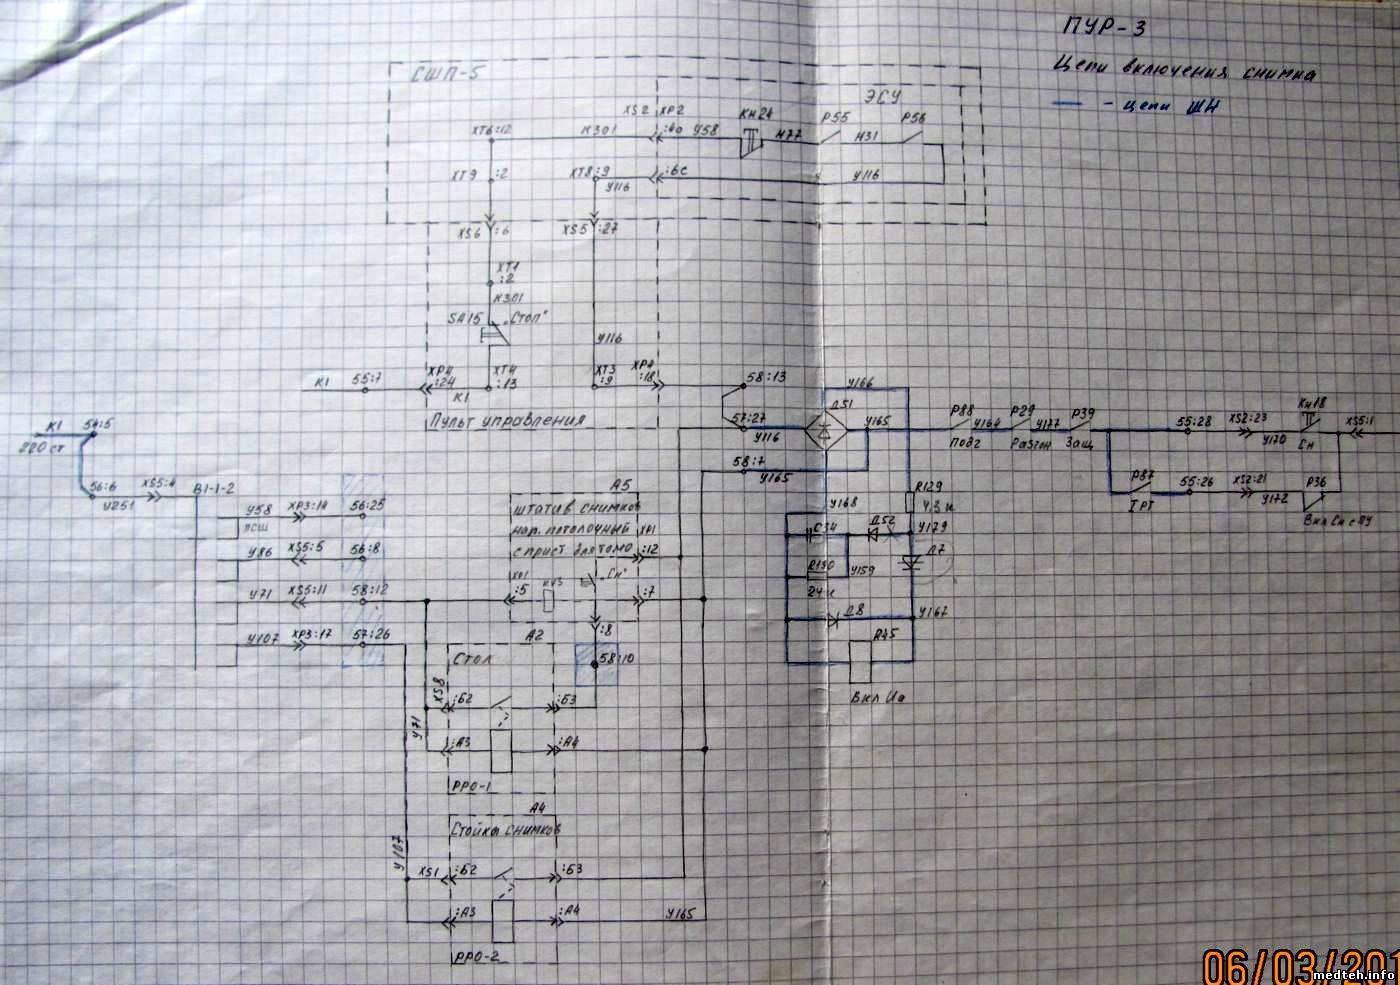 ПУР-3
Цепи включения снимка
- цепи ШН
СШП-5
ЭСУ
XS2 XP2
КН24
P55
P56
XT6:12
К301
У58
Н77
Н31
XT9 :2
XT8:9
:6с
У116
У116
XS6 :6
XS5 :27
XT1
:2
К301
SA15 „Стоп"
У116
XP4
:24
XT4
:13
XT3
:9
XP4
:18
К1 55:7
К1
Пульт управления
58:13
57:27
У116
58:7
У165
У166
Д51
У165
P88
У164
P29
У177
P39
Подг
Разгон
Защ
55:28
XS2:23
У170
КН18
Сн
XS5:1
P87
IРТ
55:26
XS2:21
У172
P36
Вкл Сн с ПУ
К1
220 ст
54:5
56:6
У251
XS5:4
В1-1-2
У58 XP3:14 56:25
ПСШ
У86 XS5:5 56:8
У71 XS5:11 58:12
У107 XP3:17 57:26
А5
Штатив снимков
нап. потолочный
с прист. для томо
:12
:5
„Сн"
:7
:8
58:10
R129
4,3 к
У168
C34
Д52
У179
R130
24 к
У159
Д7
Д8
У167
P45
Вкл Uа
А2
Стол
XS8
:Б2
:Б3
У71
:А3
:А4
РРО-1
А4
Стойка снимков
У107
XS1
:Б2
:Б3
:А3
:А4
У165
РРО-2
06/03/201
medteh.info